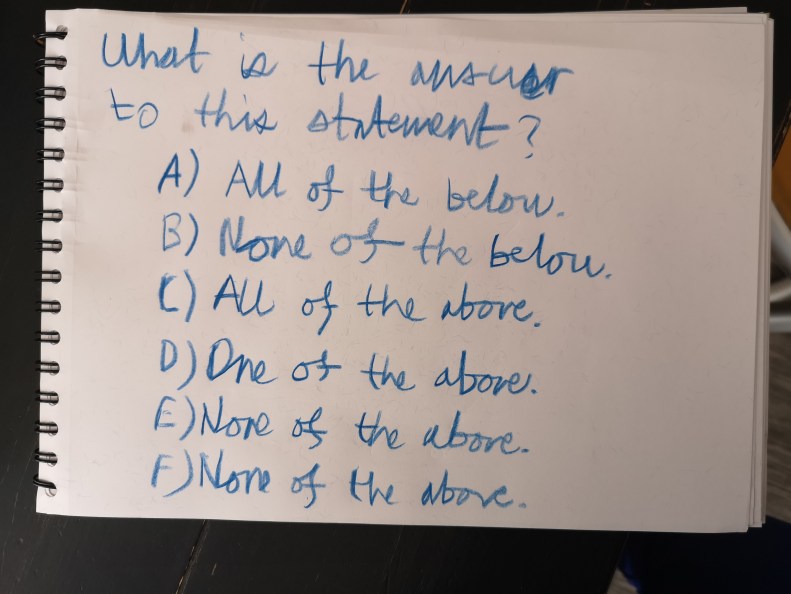 What is the answer
to this statement?
A) All of the below.
B) None of the below.
C) All of the above.
D) One of the above.
E) None of the above.
F) None of the above.